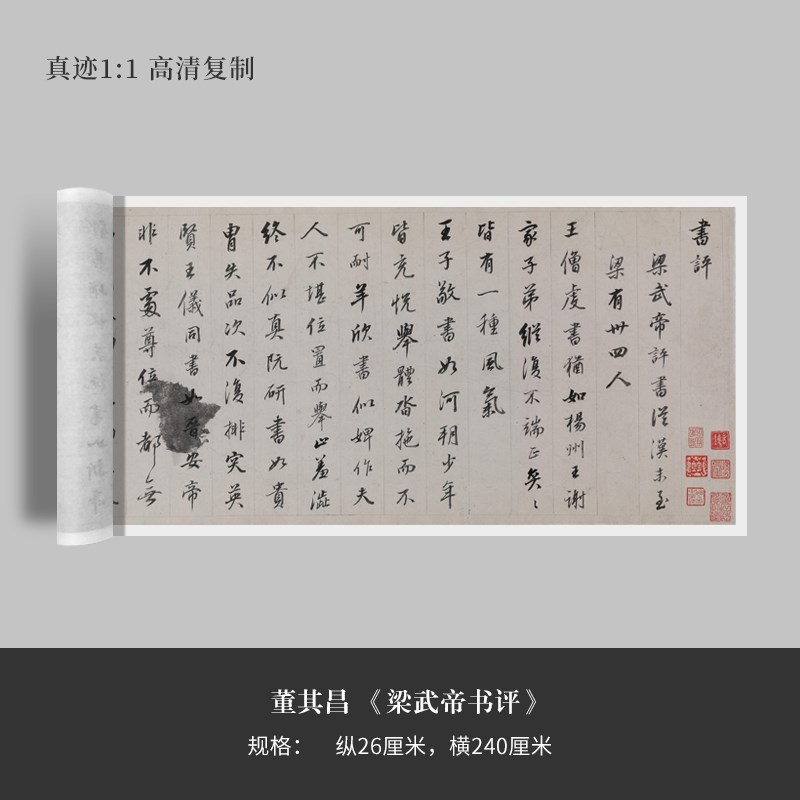 真迹1:1 高清复制
書評
梁武帝評書從漢末至
梁有卅四人
王僧虔書猶如楊州王謝
家子弟縱復不端正奕〻
皆有一種風氣
王子敬書如河朔少年
皆充悦舉體沓拖而不
可耐羊欣書似婢作夫
人不堪位置而舉止羞澀
終不似真阮研書如貴
胄失品次不復排突英
賢王儀同書如晉安帝
非不處尊位而都無
董其昌《梁武帝书评》
规格： 纵26厘米，横240厘米